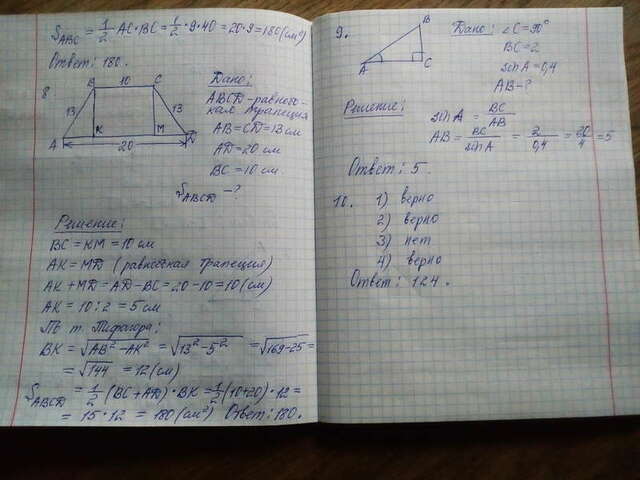 S_ABC = 1/2 AC · BC = 1/2 · 9 · 40 = 20 · 9 = 180 (см²)
Ответ: 180.
8
B 10 C
13 13
A K M D
20
Дано:
ABCD - равнобо-
кая трапеция
AB = CD = 13 см
AD = 20 см
BC = 10 см.
S_ABCD - ?
Решение:
BC = KM = 10 см
AK = MD (равнобокая трапеция)
AK + MD = AD - BC = 20 - 10 = 10 (см)
AK = 10 : 2 = 5 см
По т. Пифагора:
BK = √AB² - AK² = √13² - 5² = √169 - 25 =
= √144 = 12 (см)
S_ABCD = 1/2 (BC + AD) · BK = 1/2 (10 + 20) · 12 =
= 15 · 12 = 180 (см²) Ответ: 180.
9.
B
A C
Дано: ∠C = 90°
BC = 2
sin A = 0,4
AB - ?
Решение:
sin A = BC/AB
AB = BC/sin A = 2/0,4 = 20/4 = 5
Ответ: 5.
10. 1) верно
2) верно
3) нет
4) верно
Ответ: 124.